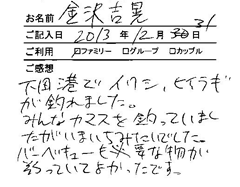 お名前 金沢吉晃
ご記入日 2013年12月31日
ご利用 ☑ファミリー □グループ □カップル
ご感想
下田港でイワシ、ヒイラギ
が釣れました。
みんなカマスを釣っていまし
たがいまいちみたいでした。
バーベキューも必要な物が
揃っていてよかったです。